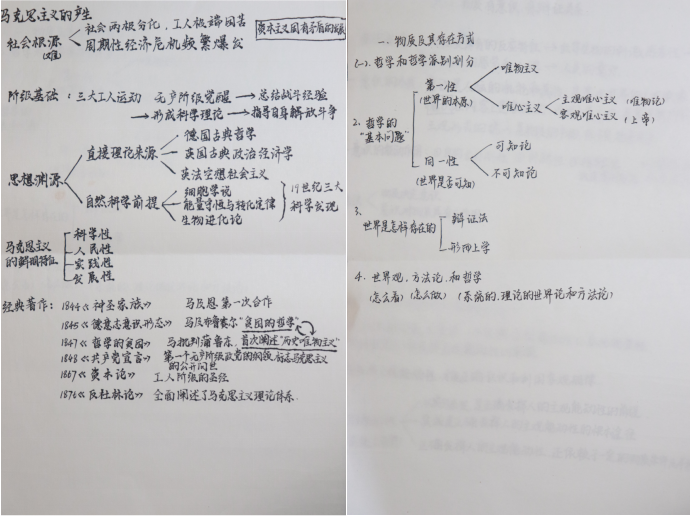 马克思主义的产生
社会根源
社会两极分化，工人极端困苦
周期性经济危机频繁爆发
资本主义固有矛盾的
阶级基础：三大工人运动 无产阶级觉醒→总结战斗经验
→形成科学理论→指导自身解放斗争
思想渊源
直接理论来源
德国古典哲学
英国古典政治经济学
英法空想社会主义
自然科学前提
细胞学说
能量守恒与转化定律
生物进化论
19世纪三大
科学发现
马克思主义
的鲜明特征
科学性
人民性
实践性
发展性
经典著作：1844《神圣家族》 马恩第一次合作
1845《德意志意识形态》
1847《哲学的贫困》 马批判蒲鲁东，首次阐述"历史唯物主义"
"贫困的哲学"
1848《共产党宣言》 第一个无产阶级政党的纲领，标志马克思主义
的公开问世
1867《资本论》 工人阶级的圣经
1876《反杜林论》 全面阐述了马克思主义理论体系.
一、物质及其存在方式
(一)、哲学和哲学派别划分
2. 哲学的
"基本问题"
第一性
(世界的本原)
唯物主义
唯心主义
主观唯心主义（唯物论）
客观唯心主义（上帝）
同一性
(世界是否可知)
可知论
不可知论
3.
世界是怎样存在的
辩证法
形而上学
4. 世界观、方法论、和哲学
(怎么看) (怎么做) (系统的、理论的世界论和方法论)